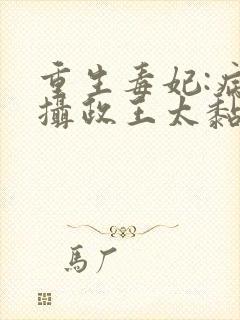 重生毒妃:病
攝政王太黏
馬厂